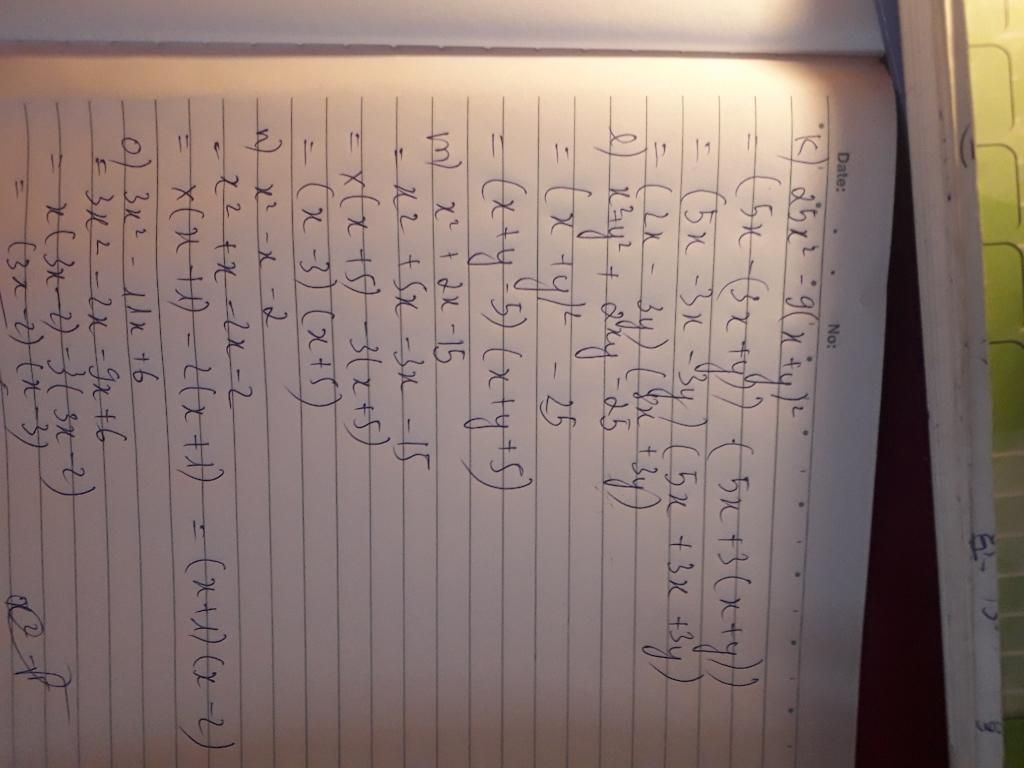 Date: No:
k) 25x² - 9(x+y)²
= (5x - (3x+y)) · (5x+3(x+y))
= (5x - 3x - 3y) (5x + 3x + 3y)
= (2x - 3y) (8x + 3y)
l) x²+y² + 2xy - 25
= (x+y)² - 25
= (x+y-5) (x+y+5)
m) x² + 2x - 15
= x² + 5x - 3x - 15
= x(x+5) - 3(x+5)
= (x-3) (x+5)
n) x² - x - 2
= x² + x - 2x - 2
= x(x+1) - 2(x+1) = (x+1)(x-2)
o) 3x² - 11x + 6
= 3x² - 2x - 9x + 6
= x(3x-2) - 3(3x-2)
= (3x-2)(x-3)